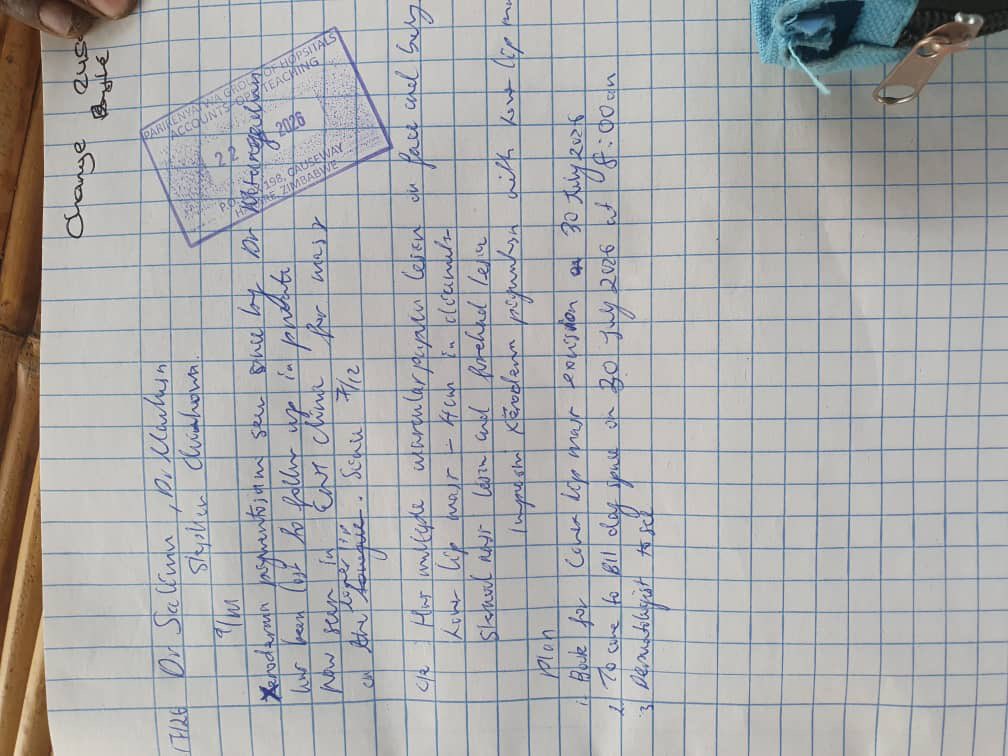 Change
17/26 Dr Salimu, Dr
Stephen
9/M
Xeroderma pigmentosum seen once by Dr
has been lost to follow up in private
now seen in ENT clinic for mass
on the lower lip. Since 7/12
PARIRENYATWA GROUP OF HOPSITALS
ACCOUNTS DEPT TEACHING
22 2026
P.O. 198, CAUSEWAY
HARARE, ZIMBABWE
O/E: Has multiple macular papular lesion on face and body
Lower lip mass - 4cm in diameter
Skin nasal lesion and forehead lesion
Impression Xeroderma pigmentosum with lower lip
Plan
1. Book for lower lip mass excision on 30 July 2026
2. To come to B11 day space on 30 July 2026 at 8:00 am
3. Dermatologist to see